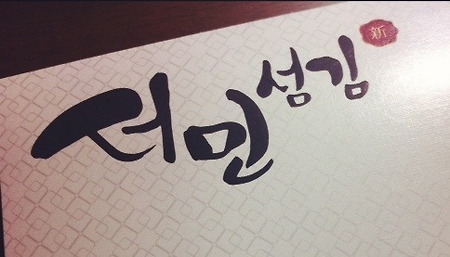 서민 섬김 新